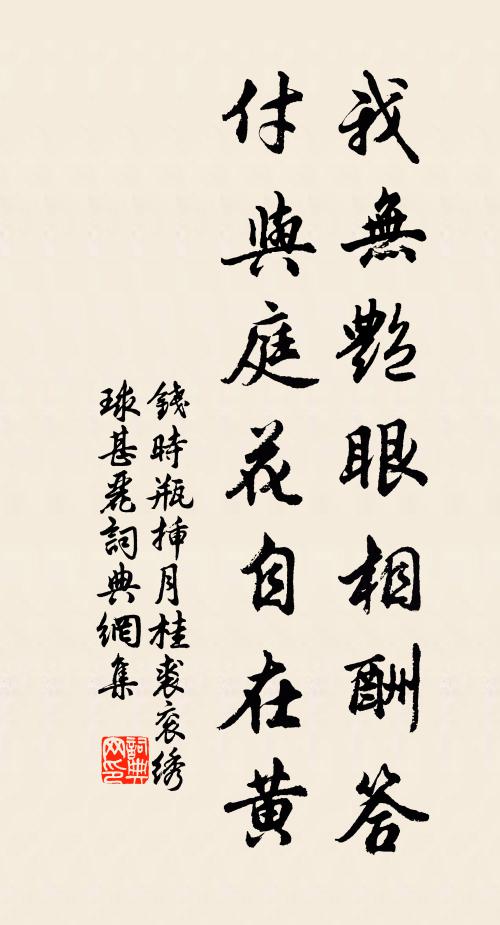 我無艷眼相酬答
付與庭花自在黃
錢時瓶插月桂裘衮绣
球甚麗詞典網集
詞典
网印